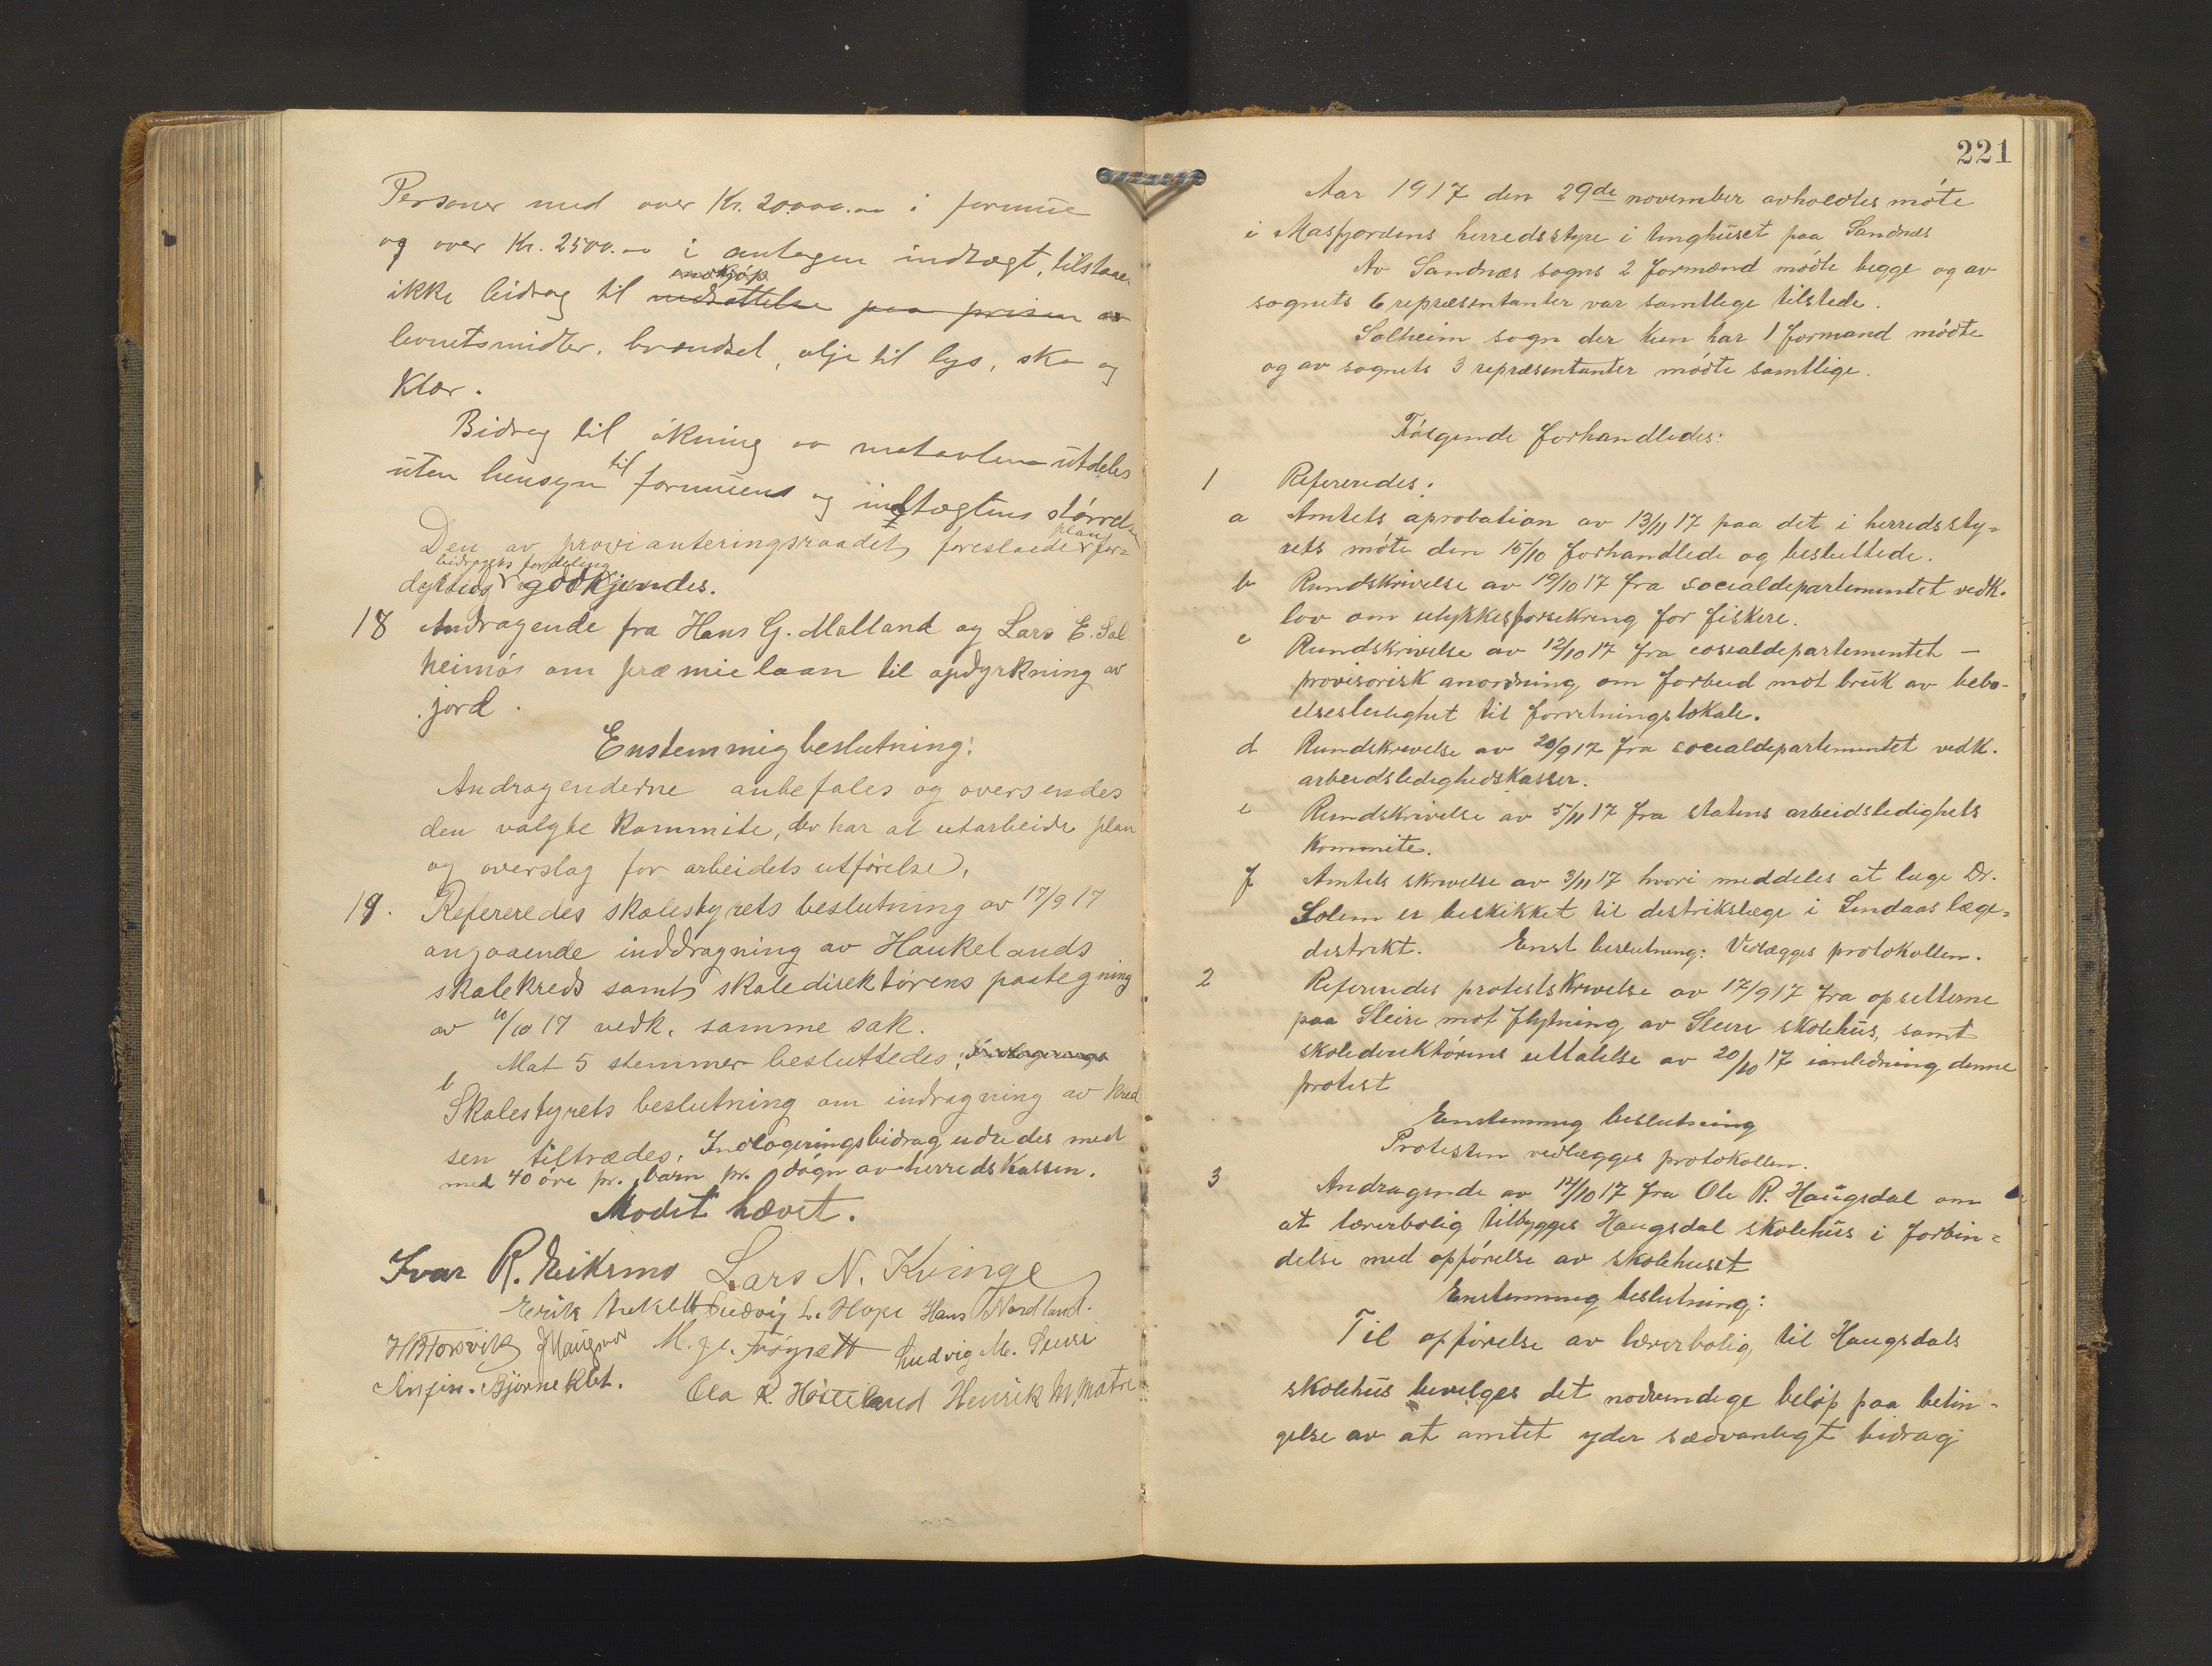 Personer med over Kr. 20000.00 i formue
og over Kr. 2500.00 i antagen indtægt, tilstaaes
indkjøp
ikke bidrag til nedsættelse paa prisen av
levnetsmidler, brændsel, olje til lys, sko og
Klær.
Bidrag til økning av matavlen utdeles
uten hensyn til formuens og indtægtens størrelse
Den av provianteringsraadet foreslaaede plan for=
bidragets fordeling
dyrtids godkjendes.
18 Andragende fra Hans G. Molland og Lars E. Sol
heimås om præmielaan til opdyrkning av
jord.
Enstemmig beslutning:
Andragenderne anbefales og oversendes
den valgte Kommite, der har at utarbeide plan
og overslag for arbeidets utførelse.
19. Refereredes skolestyrets beslutning av 17/9 17
angaaende inddragning av Haukelands
skolekreds samt skoledirektørens paategning
av 10/10 17 vedk. samme sak.
Mot 5 stemmer besluttedes: Indlogerings
Skolestyrets beslutning om indragning av kred
sen tiltrædes. Indlogeringsbidrag udredes med
med 40 øre pr. barn pr. døgn av herredskassen.
Mødet hævet.
Ivar R. Eikemo Lars N. Kvinge
Ludvig L. Hope Hans Nordland.
Ludvig M. Sleire
Anfin. Bjørneklet.
Henrik M. Matre
221
Aar 1917 den 29de november avholdtes møte
i Masfjordens herredsstyre i tinghuset paa Sandnes
Av Sandnæs sogns 2 formænd mødte begge og av
sognets 6 repræsentanter var samtlige tilstede.
Solheim sogn der kun har 1 formand mødte
og av sognets 3 repræsentanter mødte samtlige.
Følgende forhandledes:
1 Refereredes:
a Amtets aprobation av 13/11 17 paa det i herredssty=
rets møte den 15/10 forhandlede og besluttede.
b Rundskrivelse av 19/10 17 fra socialdepartementet vedk.
lov om ulykkesforsikring for fiskere.
c Rundskrivelse av 12/10 17 fra cosialdepartementet —
provisorisk anordning om forbud mot bruk av bebo-
elsesleilighet til forretningslokale.
d Rundskrivelse av 20/9 17 fra socialdepartementet vedk.
arbeidsledighedskasser.
e Rundskrivelse av 5/11 17 fra statens arbeidsledighets
Kommite.
f Amtets skrivelse av 3/11 17 hvori meddeles at læge Dr.
Solem er beskikket til distrikslæge i Lindaas læge=
distrikt. Enst beslutning: Vedlægges protokollen.
2 Refereredes protestskrivelse av 17/9 17 fra opsitterne
paa Sleire mot flytning av Sleire skolehus, samt
skoledirektørens uttalelse av 20/10 17 ianledning denne
protest
Enstemmig beslutning
Protesten vedlægges protokollen.
3 Andragende av 14/10 17 fra Ole R. Haugsdal om
at lærerbolig tilbygges Haugsdal skolehus i forbin=
delse med opførelse av skolehuset
Enstemmig beslutning:
Til opførelse av lærerbolig til Haugsdals
skolehus bevilges det nødvendige beløp paa betin-
gelse av at amtet yder sædvanligt bidrag